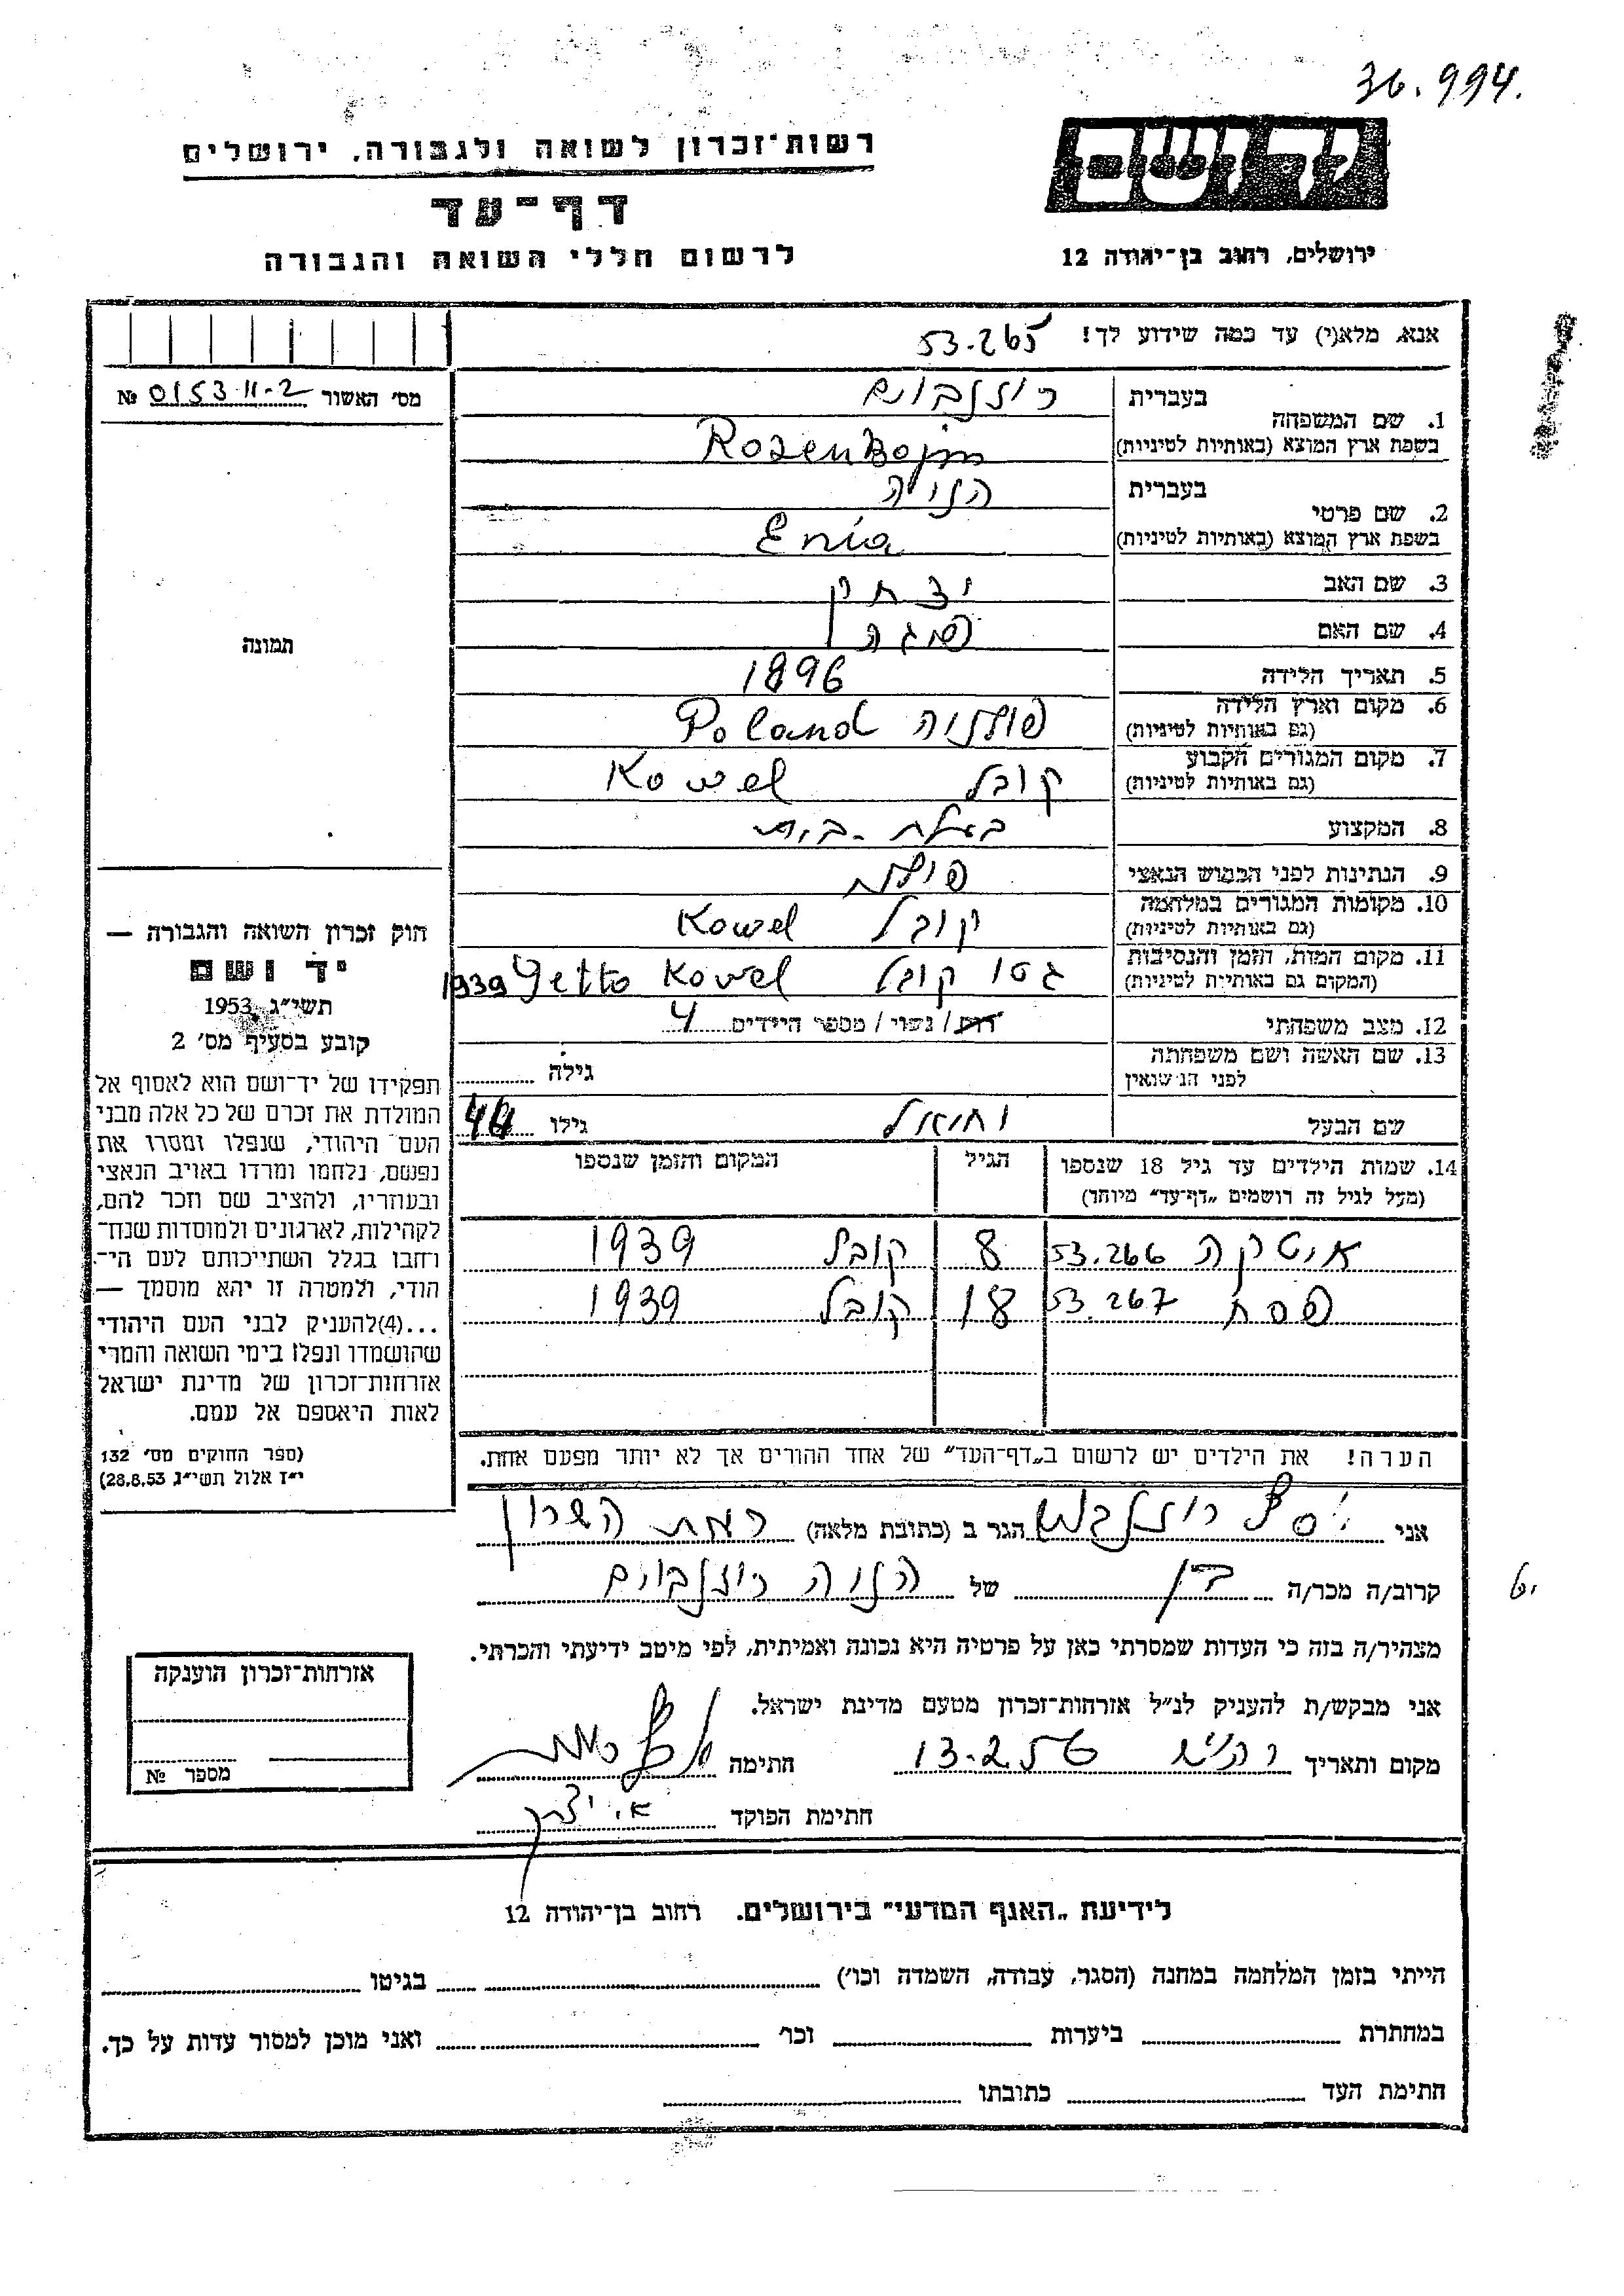 36.994.
רשות־זכרון לשואה ולגבורה, ירושלים
דף־עד
לרשום חללי השואה והגבורה
יד ושם
ירושלים, רחוב בן־יהודה 12
אנא, מלא(י) עד כמה שידוע לך! 53.265
מס׳ האשור 0153 11-2 №
1. שם המשפחה
בעברית רוזנבוים
בשפת ארץ המוצא (באותיות לטיניות) Rozenbojm
2. שם פרטי
בעברית הניה
בשפת ארץ המוצא (באותיות לטיניות) Enia
3. שם האב יצחק
4. שם האם
5. תאריך הלידה 1896
6. מקום וארץ הלידה פולניה Poland
(גם באותיות לטיניות)
7. מקום המגורים הקבוע קובל Kowel
(גם באותיות לטיניות)
8. המקצוע בעלת-בית
9. הנתינות לפני הכבוש הנאצי פולנית
10. מקומות המגורים במלחמה קובל Kowel
(גם באותיות לטיניות)
11. מקום המות, הזמן והנסיבות גטו קובל Getto Kowel 1939
(המקום גם באותיות לטיניות)
12. מצב משפחתי רוק / נשוי / מספר הילדים 4
13. שם האשה ושם משפחתה
לפני הנישואין גילה
שם הבעל גילו
תמונה
חוק זכרון השואה והגבורה —
יד ושם
תשי״ג 1953
קובע בסעיף מס׳ 2
תפקידו של יד־ושם הוא לאסוף אל
המולדת את זכרם של כל אלה מבני
העם היהודי, שנפלו ומסרו את
נפשם, נלחמו ומרדו באויב הנאצי
ובעוזריו, ולהציב שם וזכר להם,
לקהילות, לארגונים ולמוסדות שנח־
רחבו בגלל השתייכותם לעם הי־
הודי, ולמטרה זו יהא מוסמך —
...(4)להעניק לבני העם היהודי
שהושמדו ונפלו בימי השואה והמרי
אזרחות־זכרון של מדינת ישראל
לאות היאספם אל עמם.
(ספר החוקים מס׳ 132
י״ז אלול תשי״ג 28.8.53)
14. שמות הילדים עד גיל 18 שנספו הגיל המקום והזמן שנספו
(מעל לגיל זה רושמים „דף־עד״ מיוחד)
איטקה 53.266 8 קובל 1939
פסח 53.267 18 קובל 1939
הערה! את הילדים יש לרשום ב„דף־העד״ של אחד ההורים אך לא יותר מפעם אחת.
אני רוזנבוים הגר ב (כתובת מלאה) רמת השרון
קרוב/ה מכר/ה בן של הניה רוזנבוים
מצהיר/ה בזה כי העדות שמסרתי כאן על פרטיה היא נכונה ואמיתית, לפי מיטב ידיעתי והכרתי.
אני מבקש/ת להעניק לנ״ל אזרחות־זכרון מטעם מדינת ישראל.
מקום ותאריך 13.2.56 חתימה
חתימת הפוקד
אזרחות־זכרון הוענקה
מספר №
לידיעת „האגף המדעי״ בירושלים. רחוב בן־יהודה 12
הייתי בזמן המלחמה במחנה (הסגר, עבודה, השמדה וכו׳) בגיטו
במחתרת ביערות וכו׳ ואני מוכן למסור עדות על כך.
חתימת העד כתובתו